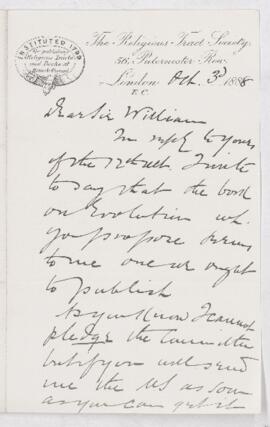 INSTITUTED 1799
For publishing
Religious Tracts
and Books at
Home & Abroad
The Religious Tract Society,
56, Paternoster Row,
London Oct. 3 1888
E.C.
Dear Sir William
In reply to yours
of the 12th ult. I write
to say that the book
on Evolution wh.
you propose seems
to me one we ought
to publish
As you know I cannot
pledge the Committee
but if you will send
me the MS as soon
as you can get it